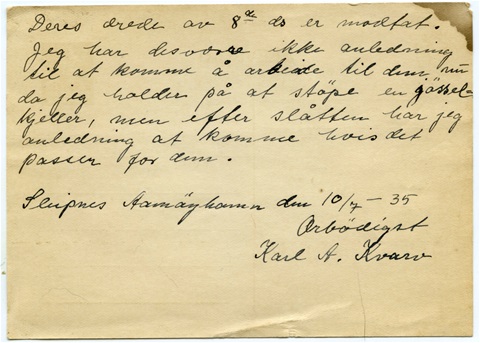 Deres ærede av 8de ds er modtat.
Jeg har desværre ikke anledning
til at komme å arbeide til dem, nu
da jeg holder på at stöpe en gössel-
kjeller, men efter slåtten har jeg
anledning at komme hvis det
passer for dem.
Sleipnes Aamöyhamn den 10/7 - 35
Ærbödigst
Karl A. Kvarv